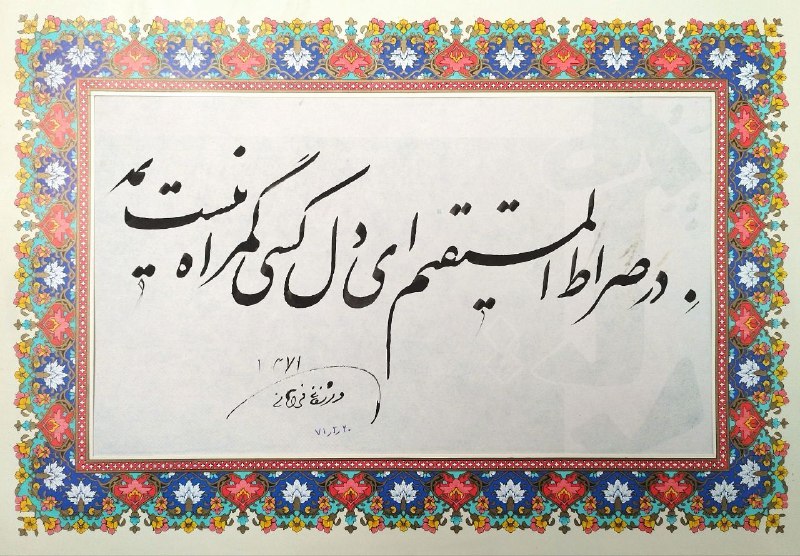 در صراط المستقیم ای دل کسی گمراه نیست
۱۳۷۱
۷۱٫۲٫۲۰